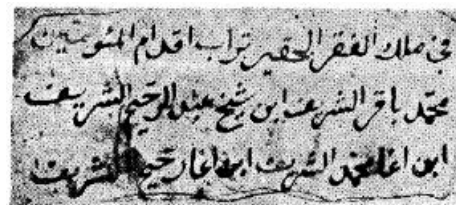 في ملك الفقر الحقير تراب اقدام المثويين
محمد باقر الشريف ابن شيخ عبد الرحيم الشريف
ابن اغا محمد الشريف ابن اغا رحيم الشريف